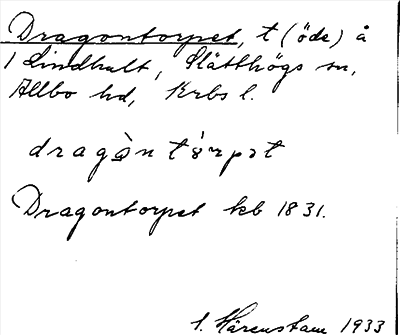 Dragontorpet, t (öde) å
1 Lindhult, Slätthögs sn,
Allbo hd, Krbs l.
dragòn tórpət
Dragontorpet kb 1831.
I. Härenstam 1933